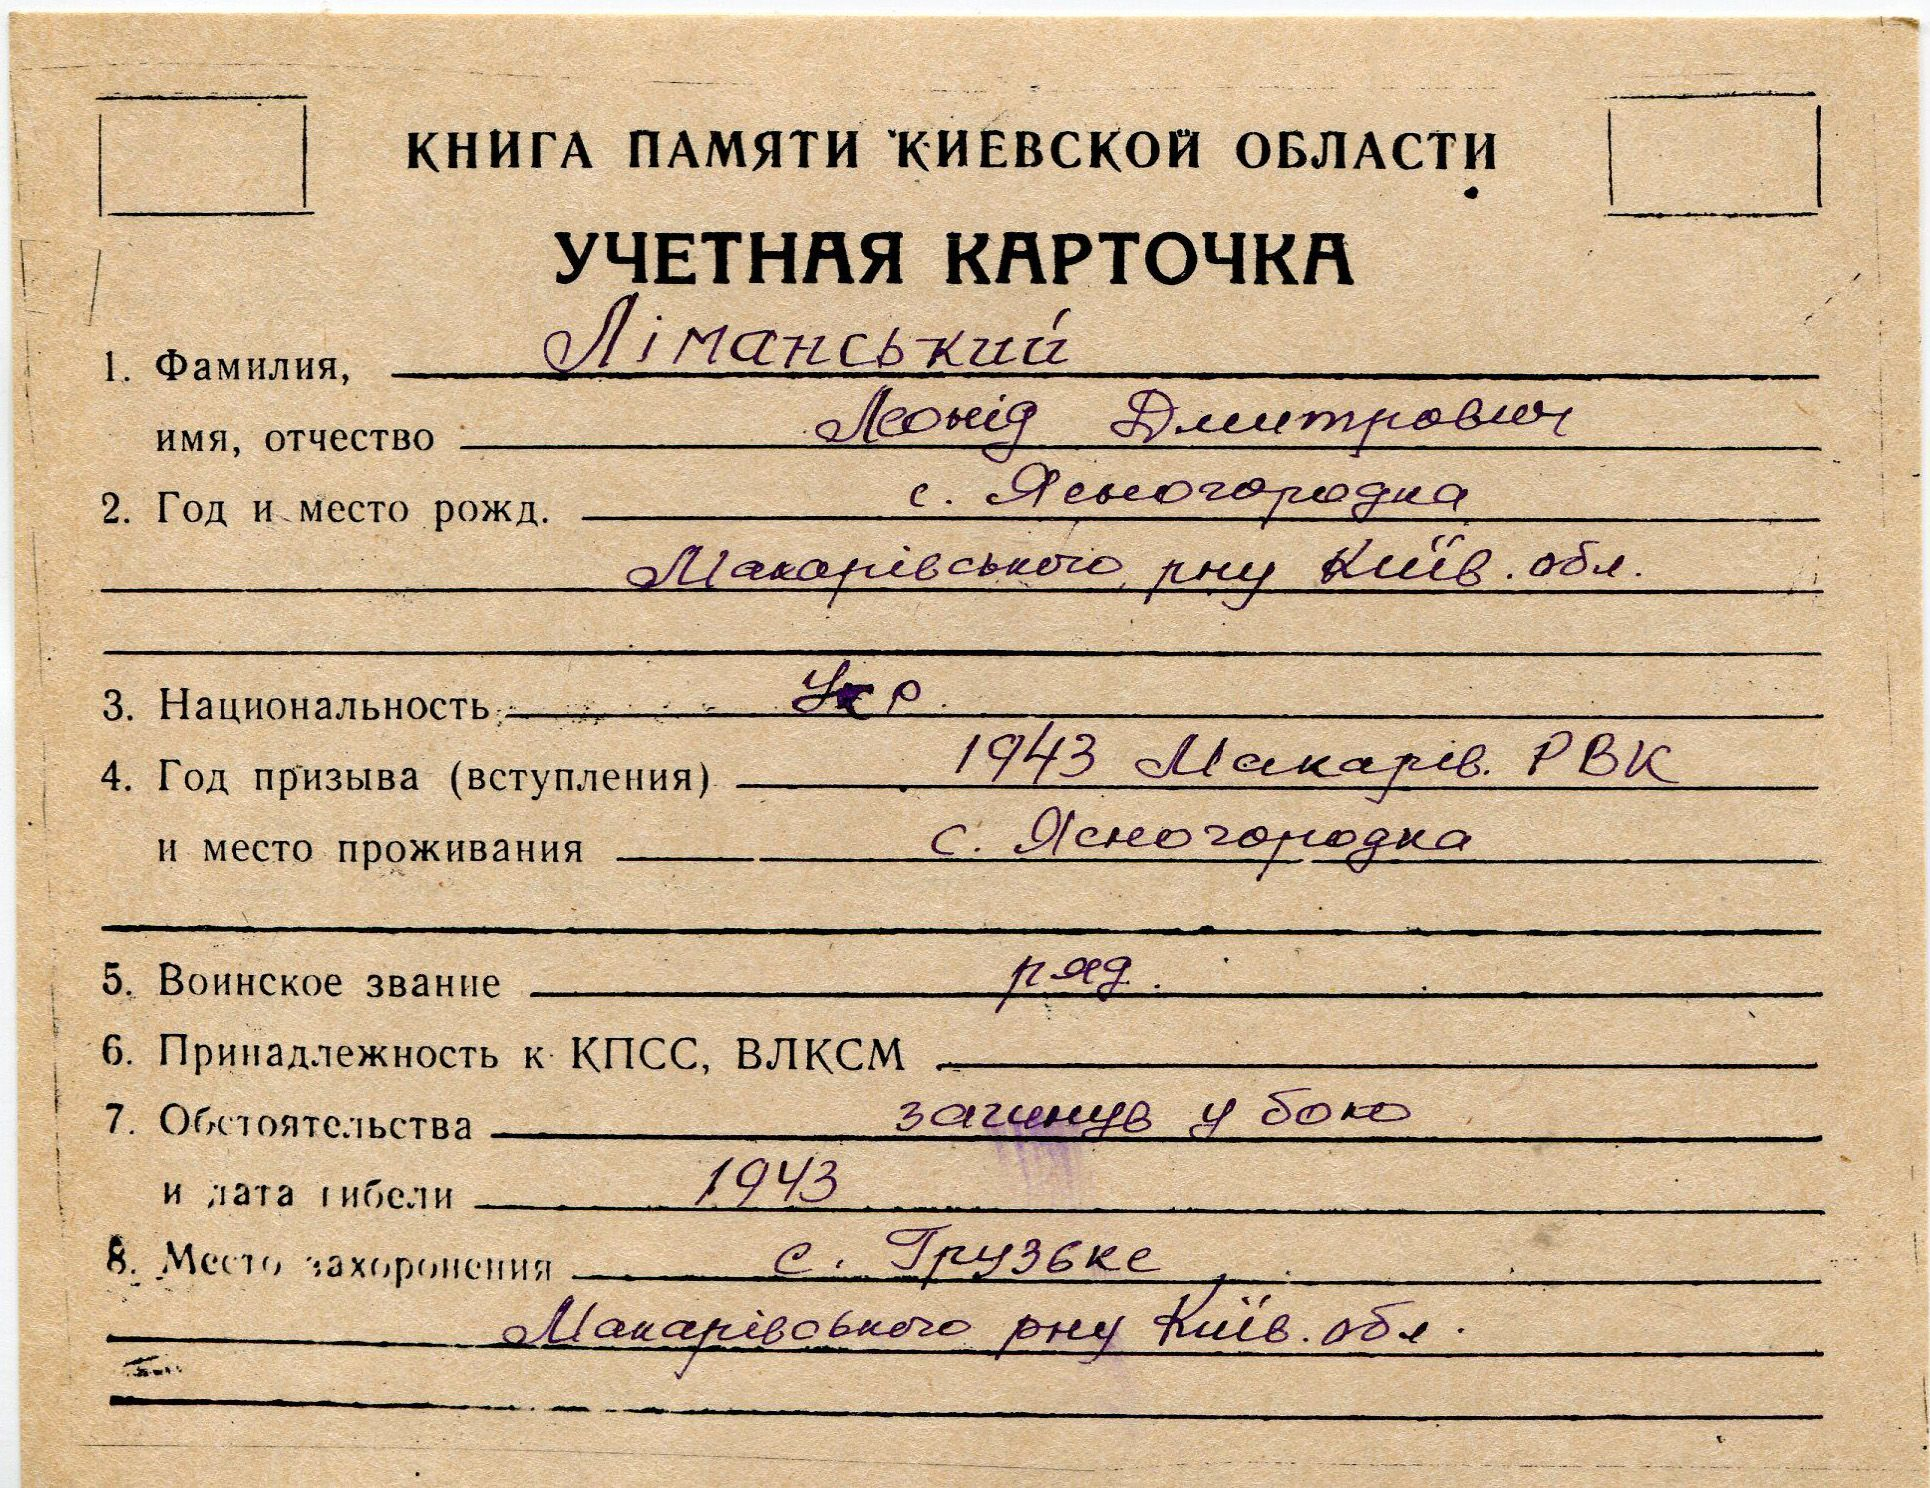 КНИГА ПАМЯТИ КИЕВСКОЙ ОБЛАСТИ
УЧЕТНАЯ КАРТОЧКА
1. Фамилия, Ліманський
имя, отчество Леонід Дмитрович
2. Год и место рожд. с. Ясногородка
Макарівського рну Київ. обл.
3. Национальность Укр.
4. Год призыва (вступления) 1943 Макарів. РВК
и место проживания с. Ясногородка
5. Воинское звание ряд.
6. Принадлежность к КПСС, ВЛКСМ
7. Обстоятельства загинув у бою
и дата гибели 1943
8. Место захоронения с. Грузьке,
Макарівського рну Київ. обл.